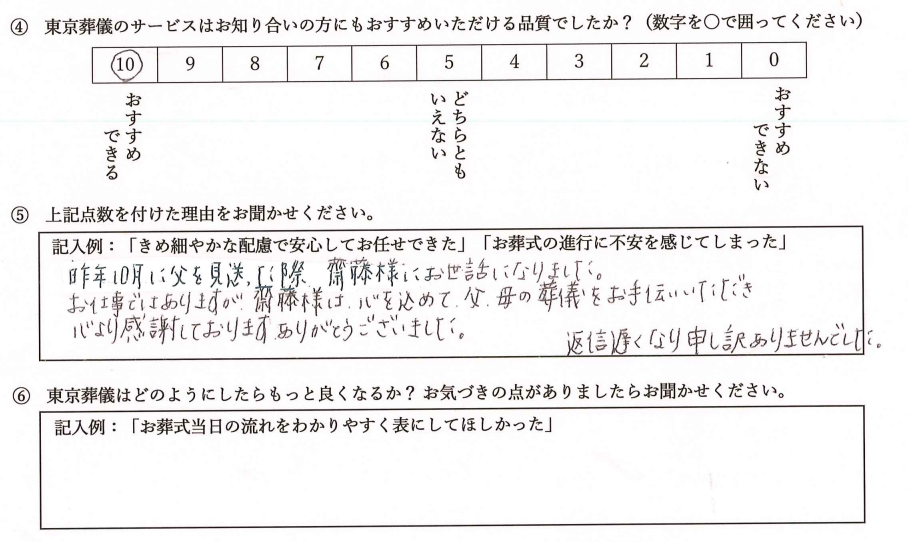 ④ 東京葬儀のサービスはお知り合いの方にもおすすめいただける品質でしたか？（数字を〇で囲ってください）
10 9 8 7 6 5 4 3 2 1 0
おすすめできる
どちらともいえない
おすすめできない
⑤ 上記点数を付けた理由をお聞かせください。
記入例：「きめ細やかな配慮で安心してお任せできた」「お葬式の進行に不安を感じてしまった」
昨年10月に父を見送った際、齋藤様にお世話になりました。
お仕事ではありますが、齋藤様は、心を込めて、父、母の葬儀をお手伝いいただき
心より感謝しております。ありがとうございました。
返信遅くなり申し訳ありませんでした。
⑥ 東京葬儀はどのようにしたらもっと良くなるか？ お気づきの点がありましたらお聞かせください。
記入例：「お葬式当日の流れをわかりやすく表にしてほしかった」